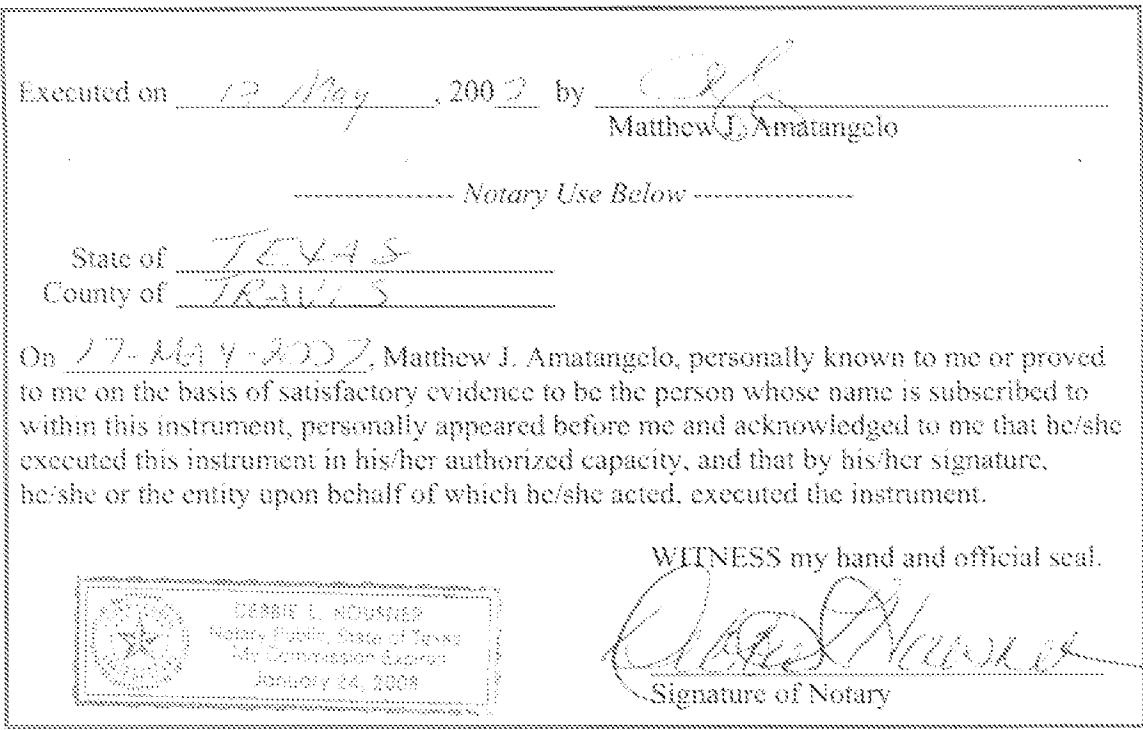 Executed on 17 May, 2007 by
Matthew J. Amatangelo
Notary Use Below
State of TEXAS
County of TRAVIS
On 17-MAY-2007, Matthew J. Amatangelo, personally known to me or proved
to me on the basis of satisfactory evidence to be the person whose name is subscribed to
within this instrument, personally appeared before me and acknowledged to me that he/she
executed this instrument in his/her authorized capacity, and that by his/her signature,
he/she or the entity upon behalf of which he/she acted, executed the instrument.
WITNESS my hand and official seal.
DEBBIE L.
Notary Public, State of Texas
My Commission Expires
January 24, 2008
Signature of Notary